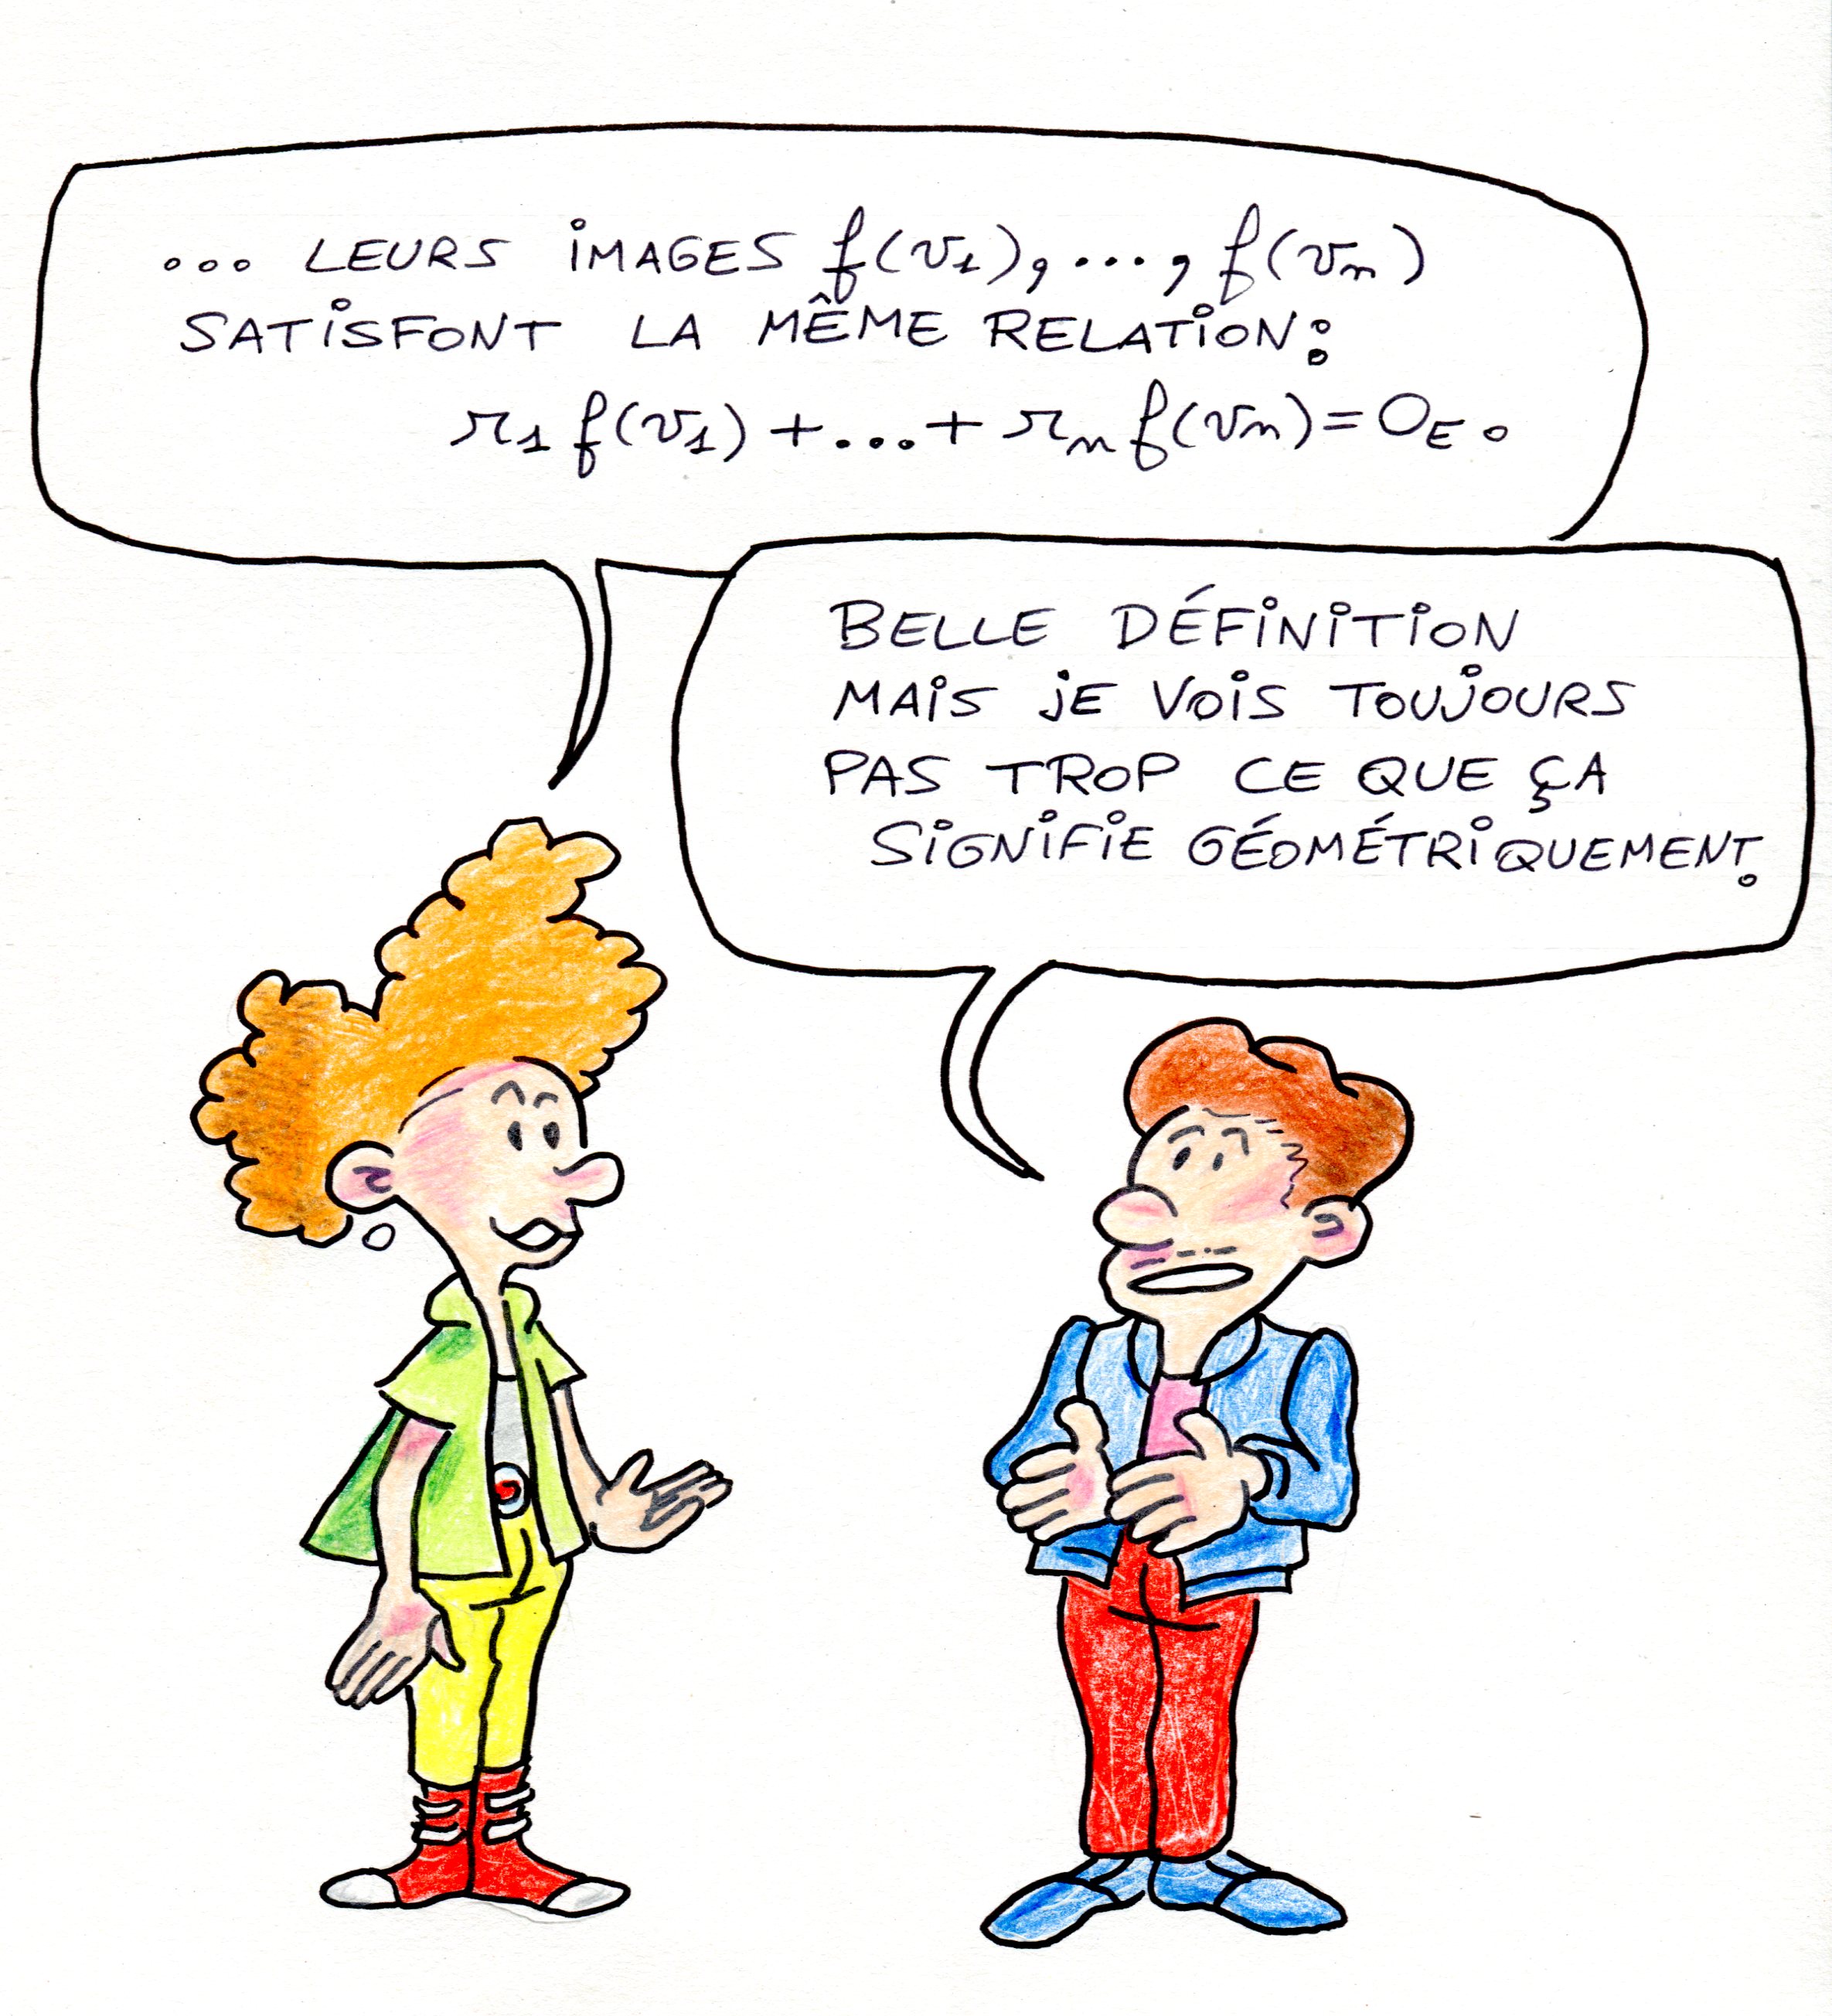 ... LEURS IMAGES f(v1), ..., f(vn)
SATISFONT LA MÊME RELATION:
r1 f(v1) + ... + rn f(vn) = 0E.
BELLE DÉFINITION
MAIS JE VOIS TOUJOURS
PAS TROP CE QUE ÇA
SIGNIFIE GÉOMÉTRIQUEMENT.